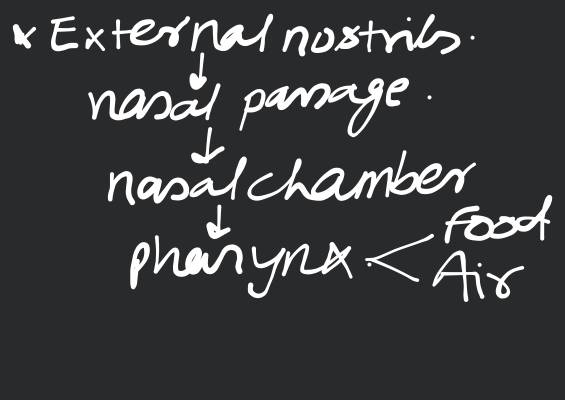 x External nostrils.
↓
nasal passage.
↓
nasal chamber
↓
pharynx < Food
Air